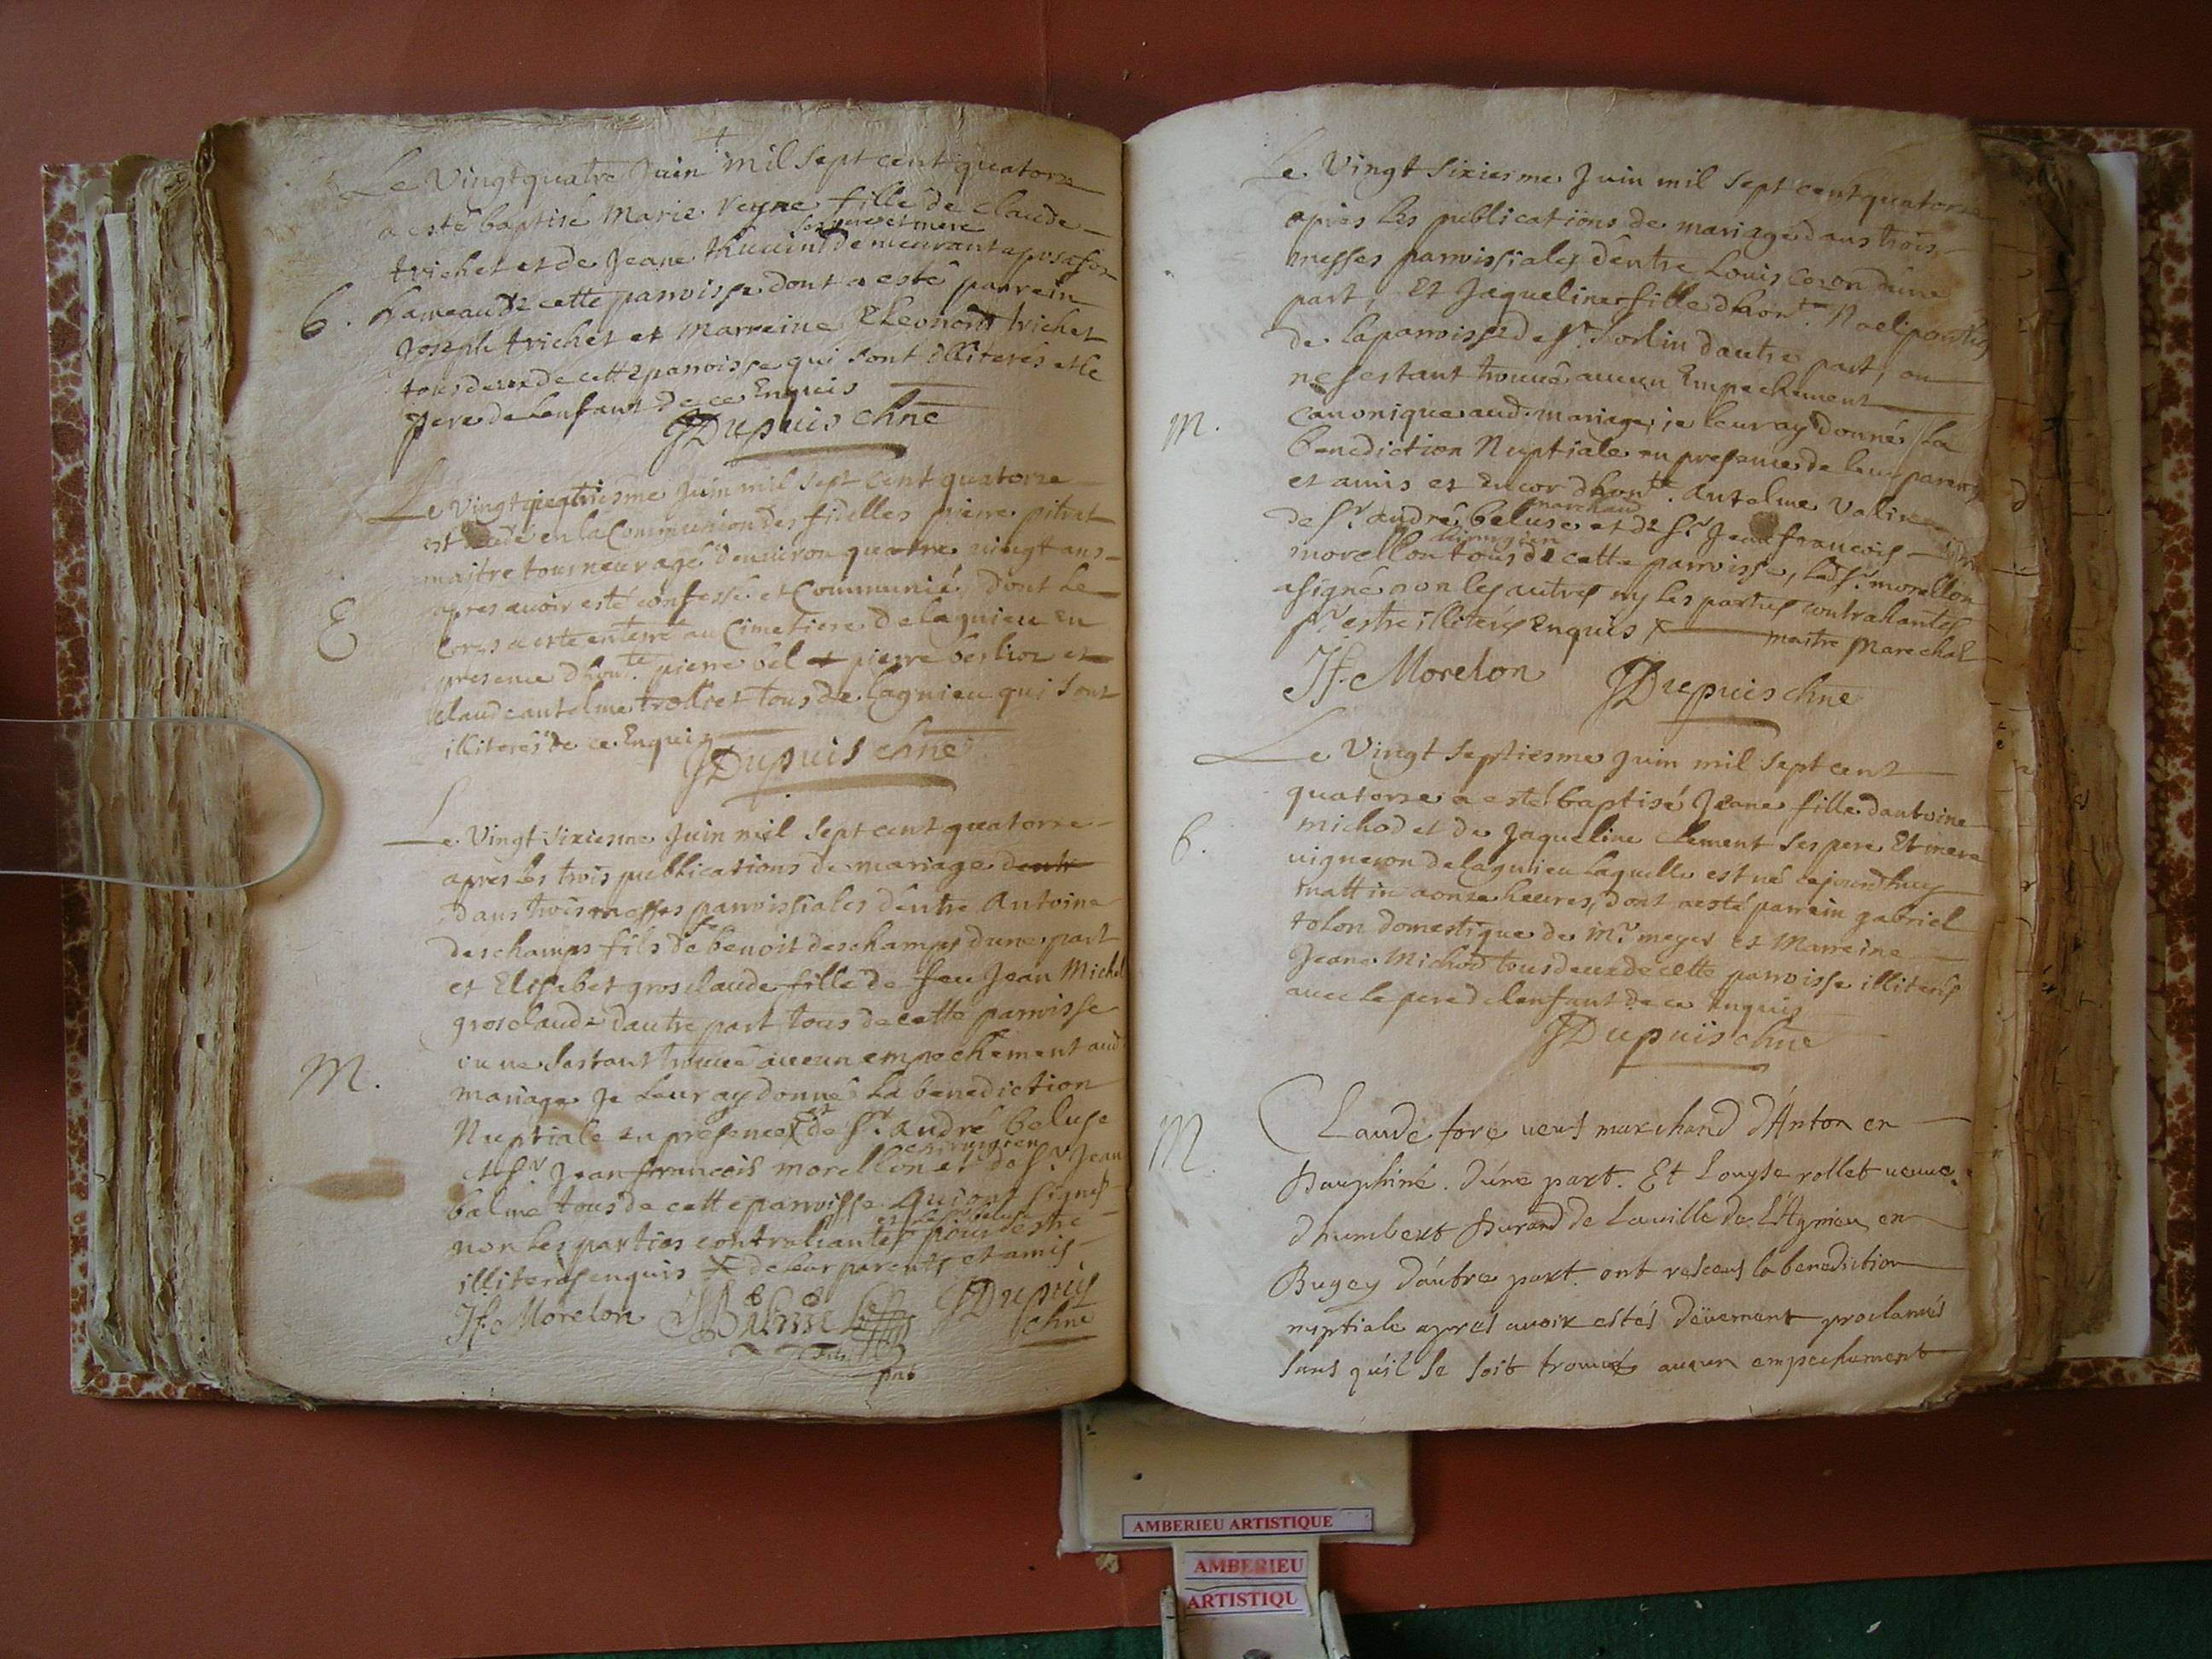 Le Vingtquatre Juin mil sept cent quatorze
a esté baptisé Marie Reyne fille de Claude
ses pere et mere
trichet et de Jeane demeurant a
B. hameau de cette parroisse dont a esté parrein
Joseph trichet et Marreine Eleonord trichet
tous deux de cette parroisse qui sont illiterés et le
pere de Lenfant de ce Enquis
JDupuis chne
Le Vingt quatriesme Juin mil sept cent quatorze
est decedé en la Communion des fidelles pierre pitret
maitre tourneur agé denviron quatre vingt ans
apres avoir esté confessé et Communié, Dont le
E Corps a esté enterré au Cimetiere de Lagnieu en
presence dhon.te pierre bel et pierre berlioz et
Claude antelme trolliet tous de Lagnieu qui sont
illiterés de ce Enquis
JDupuis chne
Le Vingt sixiesme Juin mil sept cent quatorze
apres les trois publications de mariage
dans trois messes parroissiales dentre Antoine
feu
deschamps fils de benoit deschamps dune part
et Elisabet grosclaude fille de feu Jean Michel
grosclaude dautre part tous de cette parroisse
ou ne sestant trouvé aucun empechement aud.
M. mariage Je leur ay donné la benediction
Nuptiale en presence de Sr. andré beluse
chirurgien
et Sr. Jean francois morellon et de Sr. Jean
balme tous de cette parroisse qui ont signés
et le Sr beluse
non les parties contrahantes pour estre
illiterés enquis X de leur parents et amis
Jf. Morelon JBalme JDupuis
chne
Le Vingt sixiesme Juin mil sept cent quatorze
apres les publications de mariage dans trois
messes parroissiales dentre Louis Coron dune
part, Et Jaqueline fille dhon.te Noel
de la parroisse de St. Sorlin dautre part, ou
ne sestant trouvé aucun Empechement
M. Canonique aud. mariage, je leur ay donné La
benediction Nuptiale en presence de leur parents
et amis et encor dhon.te antelme
marchand
de Sr. andré beluse et de Sr. Jean francois
chirurgien
morellon tous de cette parroisse, led Sr. morellon
a signé non les autres ny les parties contrahantes
pr. estre illiterés Enquis X maitre marechal
Jf. Morelon JDupuis chne
Le Vingt septiesme Juin mil sept cent
quatorze a esté baptisé Jeane fille dantoine
B. michod et de Jaqueline Clement ses pere Et mere
vigneron de Lagnieu Laquelle est né cejourdhuy
mattin a onze heures, dont a esté parrein gabriel
tolon domestique de mr. meyer et Marreine
Jeane Michod tous deux de cette parroisse illiterés
avec le pere de lenfant de ce Enquis
JDupuis chne
M. Claude fore veuf marchand d'Anton en
Dauphiné. d'une part. Et Louyse rollet veuve
dhumbert Durand de la ville de L'Agnieu en
Bugey d'autre part. ont receus la benediction
nuptiale apres avoir estés deüement proclamés
sans qu'il se soit trouvé aucun empechement
AMBERIEU ARTISTIQUE
AMBERIEU
ARTISTIQU